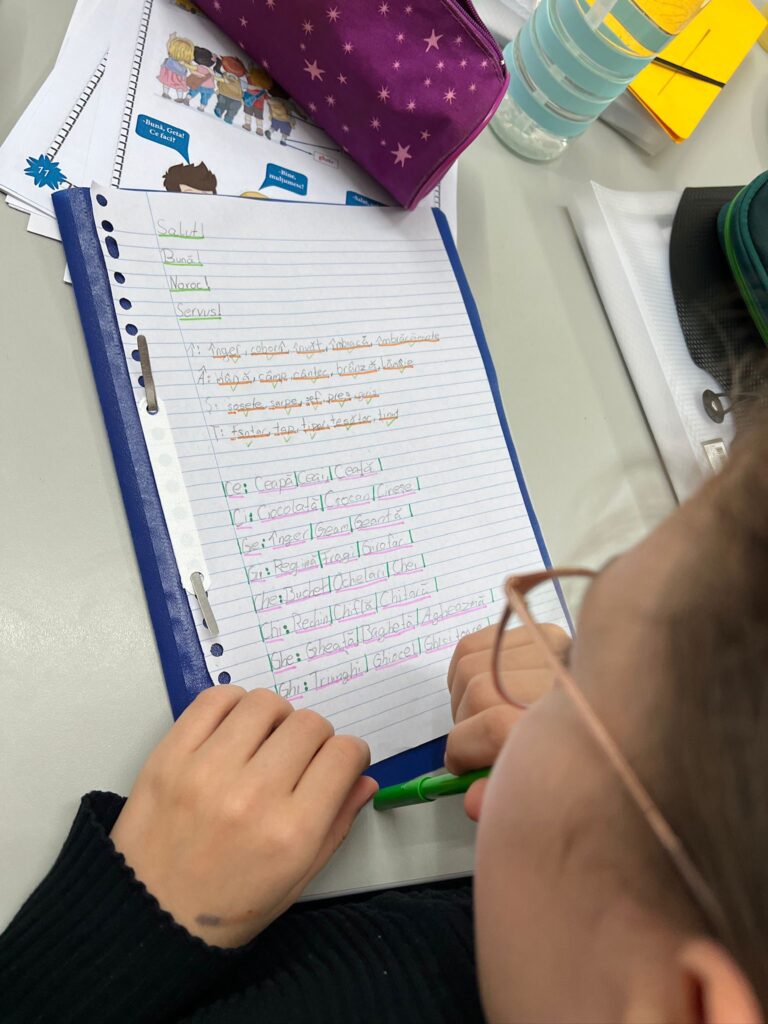 -Bună, Geta!
Ce faci?
-Bine,
mulțumesc!
11
Salut!
Bună!
Noroc!
Servus!
Î: înger, coborî, învăț, îmbracă, îmbrăcăminte
Â: până, câmp, cântec, brânză, lângă
Ș: șosete, șarpe, șef, preș,
T: țânțar, țap, țipar, țesător, ținut
Ce: Ceapă| Ceai| Ceață|
Ci: Ciocolată| Ciocan| Cireșe|
Ge: Înger| Geam| Geantă|
Gi: Regină| Fragi| Girafar|
Che: Buchet| Ochelari| Chei|
Chi: Rechin| Chiflă| Chitară|
Ghe: Gheață| Baghetă| Agheazmă|
Ghi: Triunghi| Ghiocel| Ghicitoare|